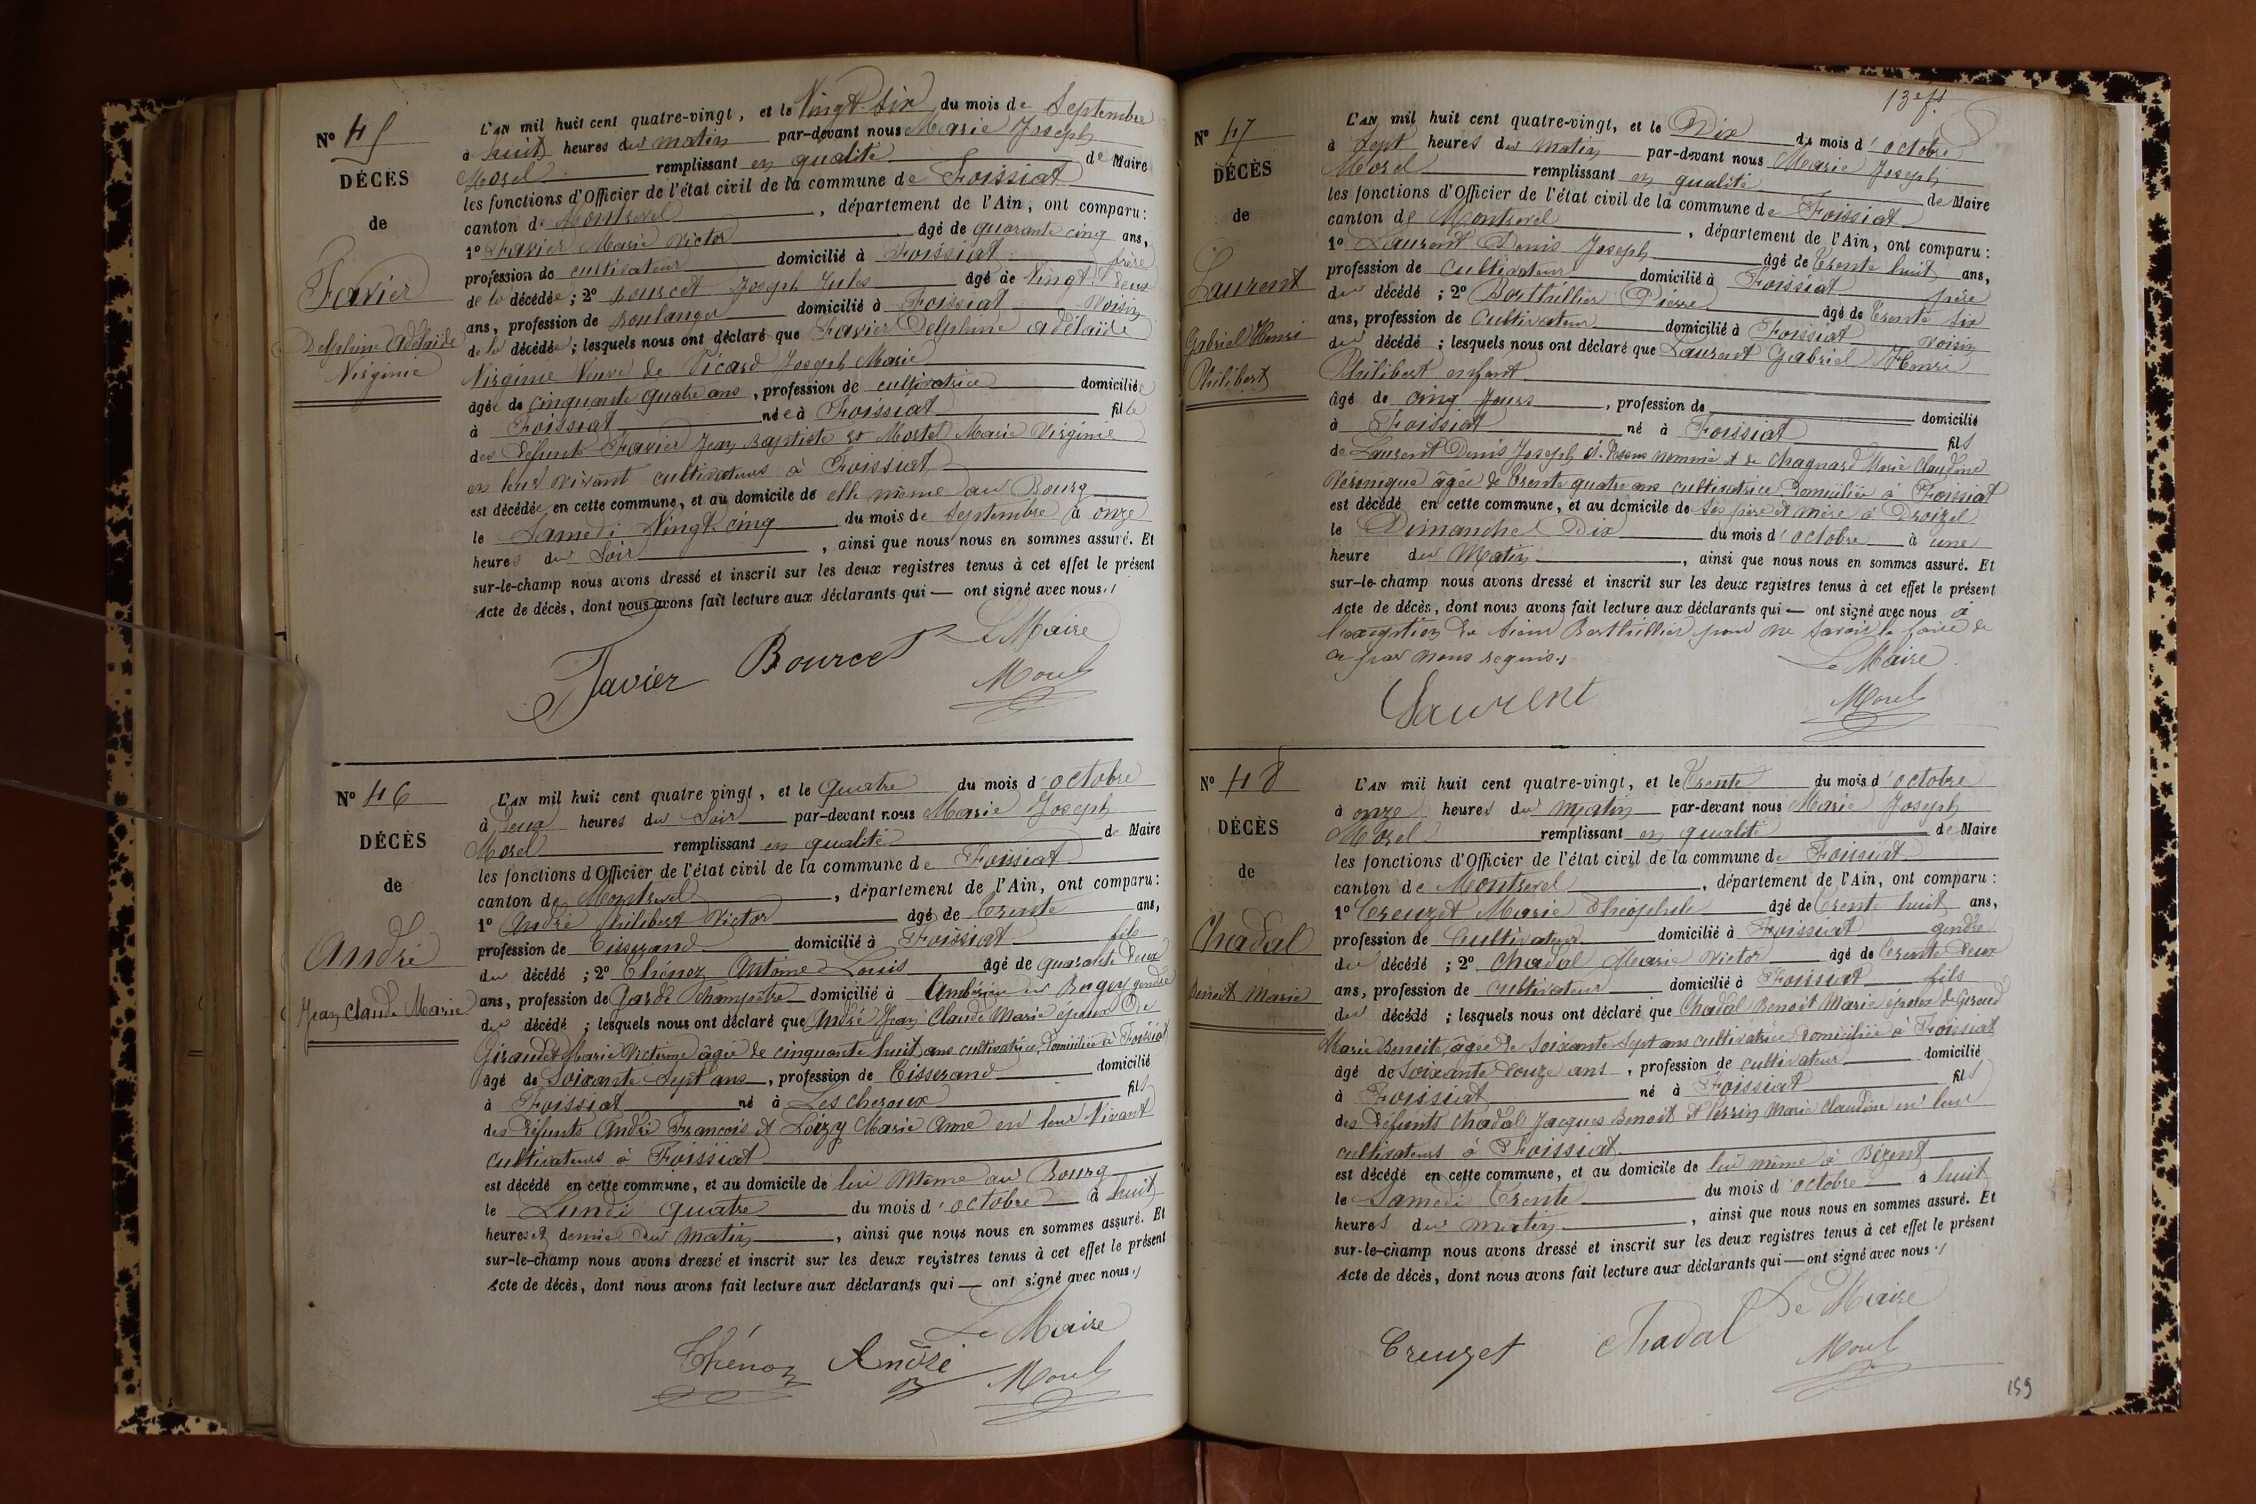 N° 45
DÉCÈS
de
Favier
Delphine Adélaïde
Virginie
L'AN mil huit cent quatre-vingt, et le Vingt-Six du mois de Septembre
à huit heures du matin par-devant nous Marie Joseph
Morel remplissant en qualité de Maire
les fonctions d'Officier de l'état civil de la commune de Foissiat
canton de Montrevel, département de l'Ain, ont comparu:
1° Favier Marie Victor âgé de quarante cinq ans,
profession de cultivateur domicilié à Foissiat frère
de la décédée; 2° Bourcet Joseph Jules âgé de Vingt deux
ans, profession de Boulanger domicilié à Foissiat voisin
de la décédée; lesquels nous ont déclaré que Favier Delphine Adélaïde
Virginie Veuve de Picard Joseph Marie
âgée de cinquante quatre ans, profession de cultivatrice domiciliée
à Foissiat née à Foissiat fille
des défunts Favier Jean Baptiste et Mortel Marie Virginie
en leur vivant cultivateurs à Foissiat
est décédée en cette commune, et au domicile de elle même au Bourg
le Samedi Vingt cinq du mois de Septembre à onze
heures du Soir, ainsi que nous nous en sommes assuré. Et
sur-le-champ nous avons dressé et inscrit sur les deux registres tenus à cet effet le présent
Acte de décès, dont nous avons fait lecture aux déclarants qui — ont signé avec nous./
Le Maire
Favier Bourcet Morel
N° 46
DÉCÈS
de
André
Jean Claude Marie
L'AN mil huit cent quatre vingt, et le quatre du mois d'octobre
à Deux heures du Soir par-devant nous Marie Joseph
Morel remplissant en qualité de Maire
les fonctions d'Officier de l'état civil de la commune de Foissiat
canton de Montrevel, département de l'Ain, ont comparu:
1° André Philibert Victor âgé de Trente ans,
profession de Tisserand domicilié à Foissiat fils
du décédé; 2° Thénoz Antoine Louis âgé de quarante deux
ans, profession de Garde Champêtre domicilié à Ambérieu en Bugey gendre
du décédé; lesquels nous ont déclaré que André Jean Claude Marie époux De
Giraudet Marie Victorine âgée de cinquante huit ans cultivatrice domiciliée à Foissiat
âgé de Soixante Sept ans, profession de Tisserand domicilié
à Foissiat né à Les cheroux fils
des défunts André François et Loizy Marie Anne en leur Vivant
cultivateurs à Foissiat
est décédé en cette commune, et au domicile de lui même au Bourg
le Lundi quatre du mois d'octobre à huit
heures et demie du Matin, ainsi que nous nous en sommes assuré. Et
sur-le-champ nous avons dressé et inscrit sur les deux registres tenus à cet effet le présent
Acte de décès, dont nous avons fait lecture aux déclarants qui — ont signé avec nous./
Le Maire
Thénoz André Morel
13e ft
N° 47
DÉCÈS
de
Laurent
Gabriel Henri
Philibert
L'AN mil huit cent quatre-vingt, et le Dix du mois d'octobre
à Sept heures du matin par-devant nous Marie Joseph
Morel remplissant en qualité de Maire
les fonctions d'Officier de l'état civil de la commune de Foissiat
canton de Montrevel, département de l'Ain, ont comparu:
1° Laurent Denis Joseph âgé de Trente huit ans,
profession de cultivateur domicilié à Foissiat père
du décédé; 2° Berthillier Pierre âgé de Trente Six
ans, profession de Cultivateur domicilié à Foissiat voisin
du décédé; lesquels nous ont déclaré que Laurent Gabriel Henri
Philibert enfant
âgé de cinq jours, profession de domicilié
à Foissiat né à Foissiat fils
de Laurent Denis Joseph ci-Dessus nommé et de Chagnard Marie Claudine
Véronique âgée de Trente quatre ans cultivatrice domiciliée à Foissiat
est décédé en cette commune, et au domicile de Ses père et mère à
le Dimanche Dix du mois d'octobre à une
heure du Matin, ainsi que nous nous en sommes assuré. Et
sur-le-champ nous avons dressé et inscrit sur les deux registres tenus à cet effet le présent
Acte de décès, dont nous avons fait lecture aux déclarants qui — ont signé avec nous à
l'exception du Sieur Berthillier pour ne Savoir le faire de
ce par nous requis./
Le Maire
Laurent Morel
N° 48
DÉCÈS
de
Chadal
Benoit Marie
L'AN mil huit cent quatre-vingt, et le Trente du mois d'octobre
à onze heures du matin par-devant nous Marie Joseph
Morel remplissant en qualité de Maire
les fonctions d'Officier de l'état civil de la commune de Foissiat
canton de Montrevel, département de l'Ain, ont comparu:
1° Creuzet Marie Théophile âgé de Trente huit ans,
profession de Cultivateur domicilié à Foissiat gendre
du décédé; 2° Chadal Marie Victor âgé de Trente deux
ans, profession de cultivateur domicilié à Foissiat fils
du décédé; lesquels nous ont déclaré que Chadal Benoit Marie époux de Giraud
Marie Benoite âgée de Soixante Sept ans cultivatrice domiciliée à Foissiat
âgé de Soixante douze ans, profession de cultivateur domicilié
à Foissiat né à Foissiat fils
des défunts Chadal Jacques Benoit et Perrin Marie Claudine en leur
cultivateurs à Foissiat
est décédé en cette commune, et au domicile de lui même à Bizent
le Samedi Trente du mois d'octobre à huit
heures du matin, ainsi que nous nous en sommes assuré. Et
sur-le-champ nous avons dressé et inscrit sur les deux registres tenus à cet effet le présent
Acte de décès, dont nous avons fait lecture aux déclarants qui — ont signé avec nous./
Le Maire
Creuzet Chadal Morel
159